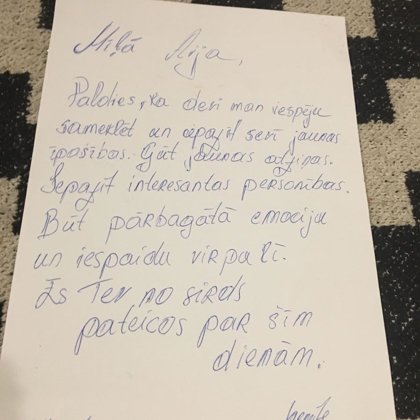 Mīļā Aija,
Paldies, ka devi man iespēju
sameklēt un iepazīt sevī jaunas
īpašības. Gūt jaunas atziņas.
Iepazīt interesantas personības.
Būt pārbagātā emociju
un iespaidu virpulī.
Es Tev no sirds
pateicos par šīm
dienām.